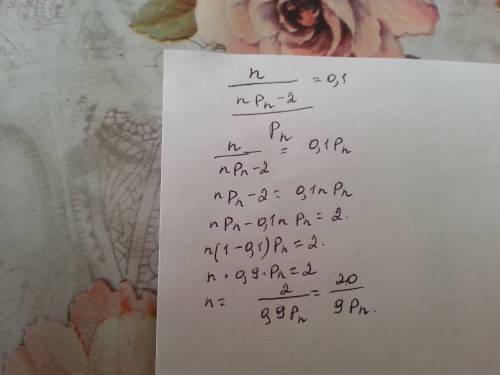 n / (n Pₙ - 2) / Pₙ = 0,1
n / (n Pₙ - 2) = 0,1 Pₙ
n Pₙ - 2 = 0,1 n Pₙ
n Pₙ - 0,1 n Pₙ = 2.
n (1 - 0,1) Pₙ = 2.
n · 0,9 · Pₙ = 2
n = 2 / 0,9 Pₙ = 20 / 9 Pₙ.